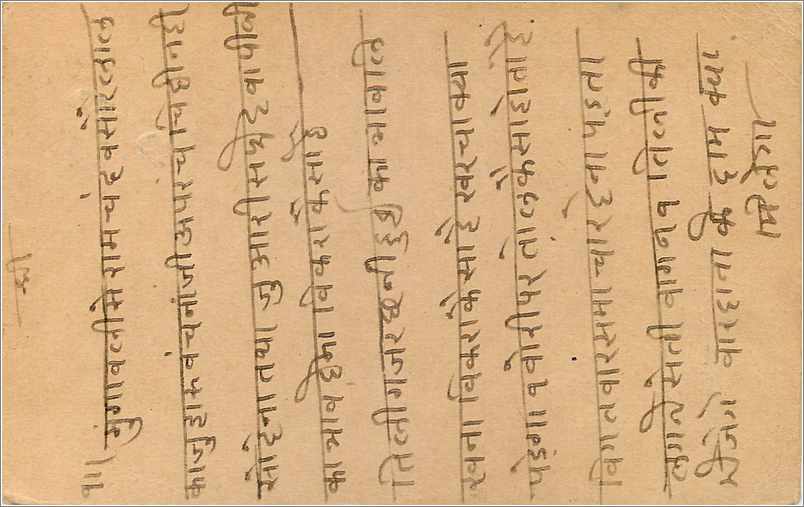 श्री
१॥ मुंगावली से रामचंद वसोरेलाल
का जुहारु वंचना जी अपरंच चिट्ठी नही
सो देना तथा जुआरी सफेद व पीली
का भाव विकरी कैसी है
तिली गजर छनी हुई का भाव लि
खना विकरी कैसी है खरचा क्या
पड़ेगा व बोरी पर तोल कैसो होतो है
विगतवार समाचार देना पड़ता
लगते सेती तिली की
भेजेगे वारदाना के दाम क्या
मिलेगा